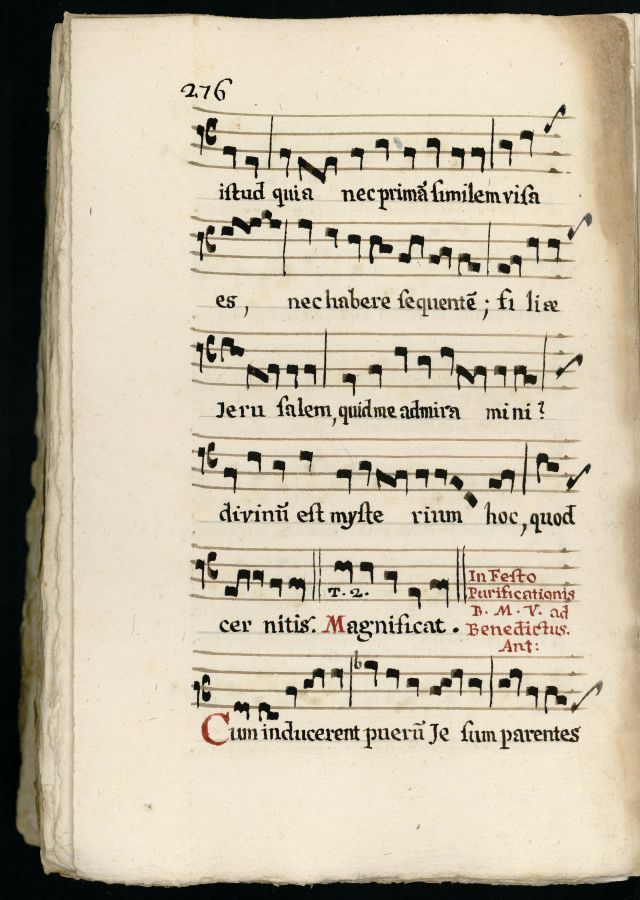 276
istud quia nec primā similem visa
es, nec habere sequentē; fi liæ
Jeru salem, quid me admira mini?
divinū est myste rium hoc, quod
T. 2.
cer nitis. Magnificat.
In Festo
Purificationis
B. M. V. ad
Benedictus.
Ant:
Cum inducerent puerū Je sum parentes